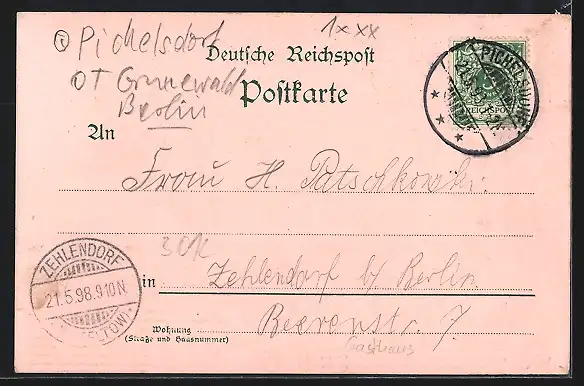 ① Pichelsdorf
OT Grunewald
Berlin
1xxx
Deutsche Reichspost
Postkarte
PICHELSDORF
21.5.98
REICHSPOST
An
Frau H. Patschkowski.
30K
in Zehlendorf b/ Berlin.
Beerenstr. 7.
Wohnung
(Straße und Hausnummer)
Gasthaus
ZEHLENDORF
21.5.98.9 10N
(TELTOW)